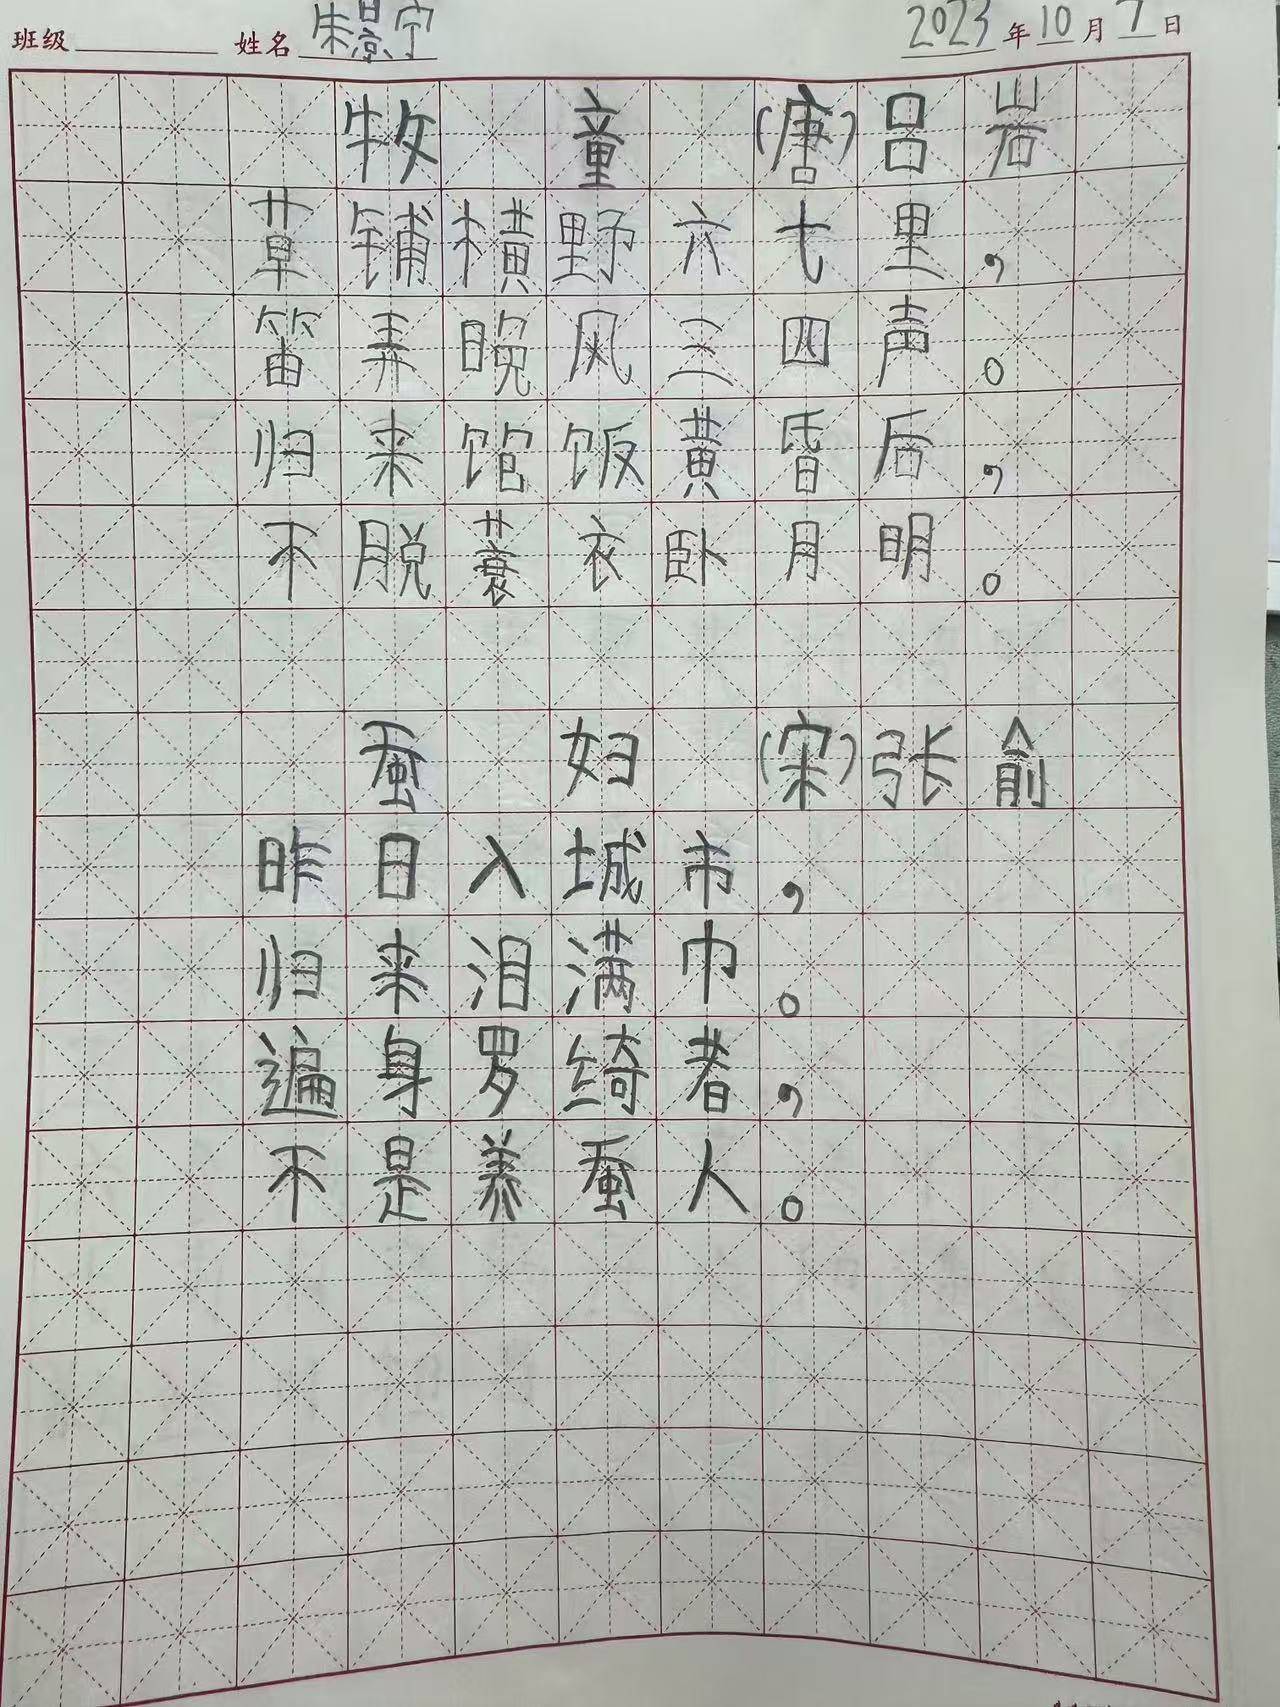 班级 姓名 朱景宁 2023年10月7日
牧 童 (唐)吕岩
草铺横野六七里，
笛弄晚风三四声。
归来饱饭黄昏后，
不脱蓑衣卧月明。
蚕 妇 (宋)张俞
昨日入城市，
归来泪满巾。
遍身罗绮者，
不是养蚕人。